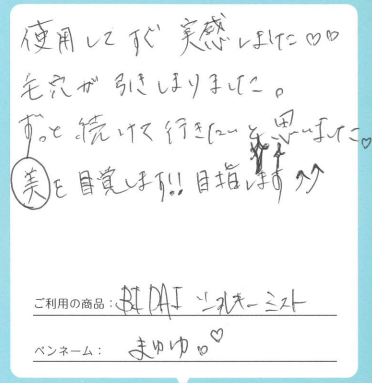 使用してすぐ実感しました♡♡
毛穴が引きしまりました。
ずっと続けて行きたいと思いました♡
美を目覚します!!目指します↑↑
ご利用の商品：BIDAI シルキーミスト
ペンネーム：まゆゆ。♡